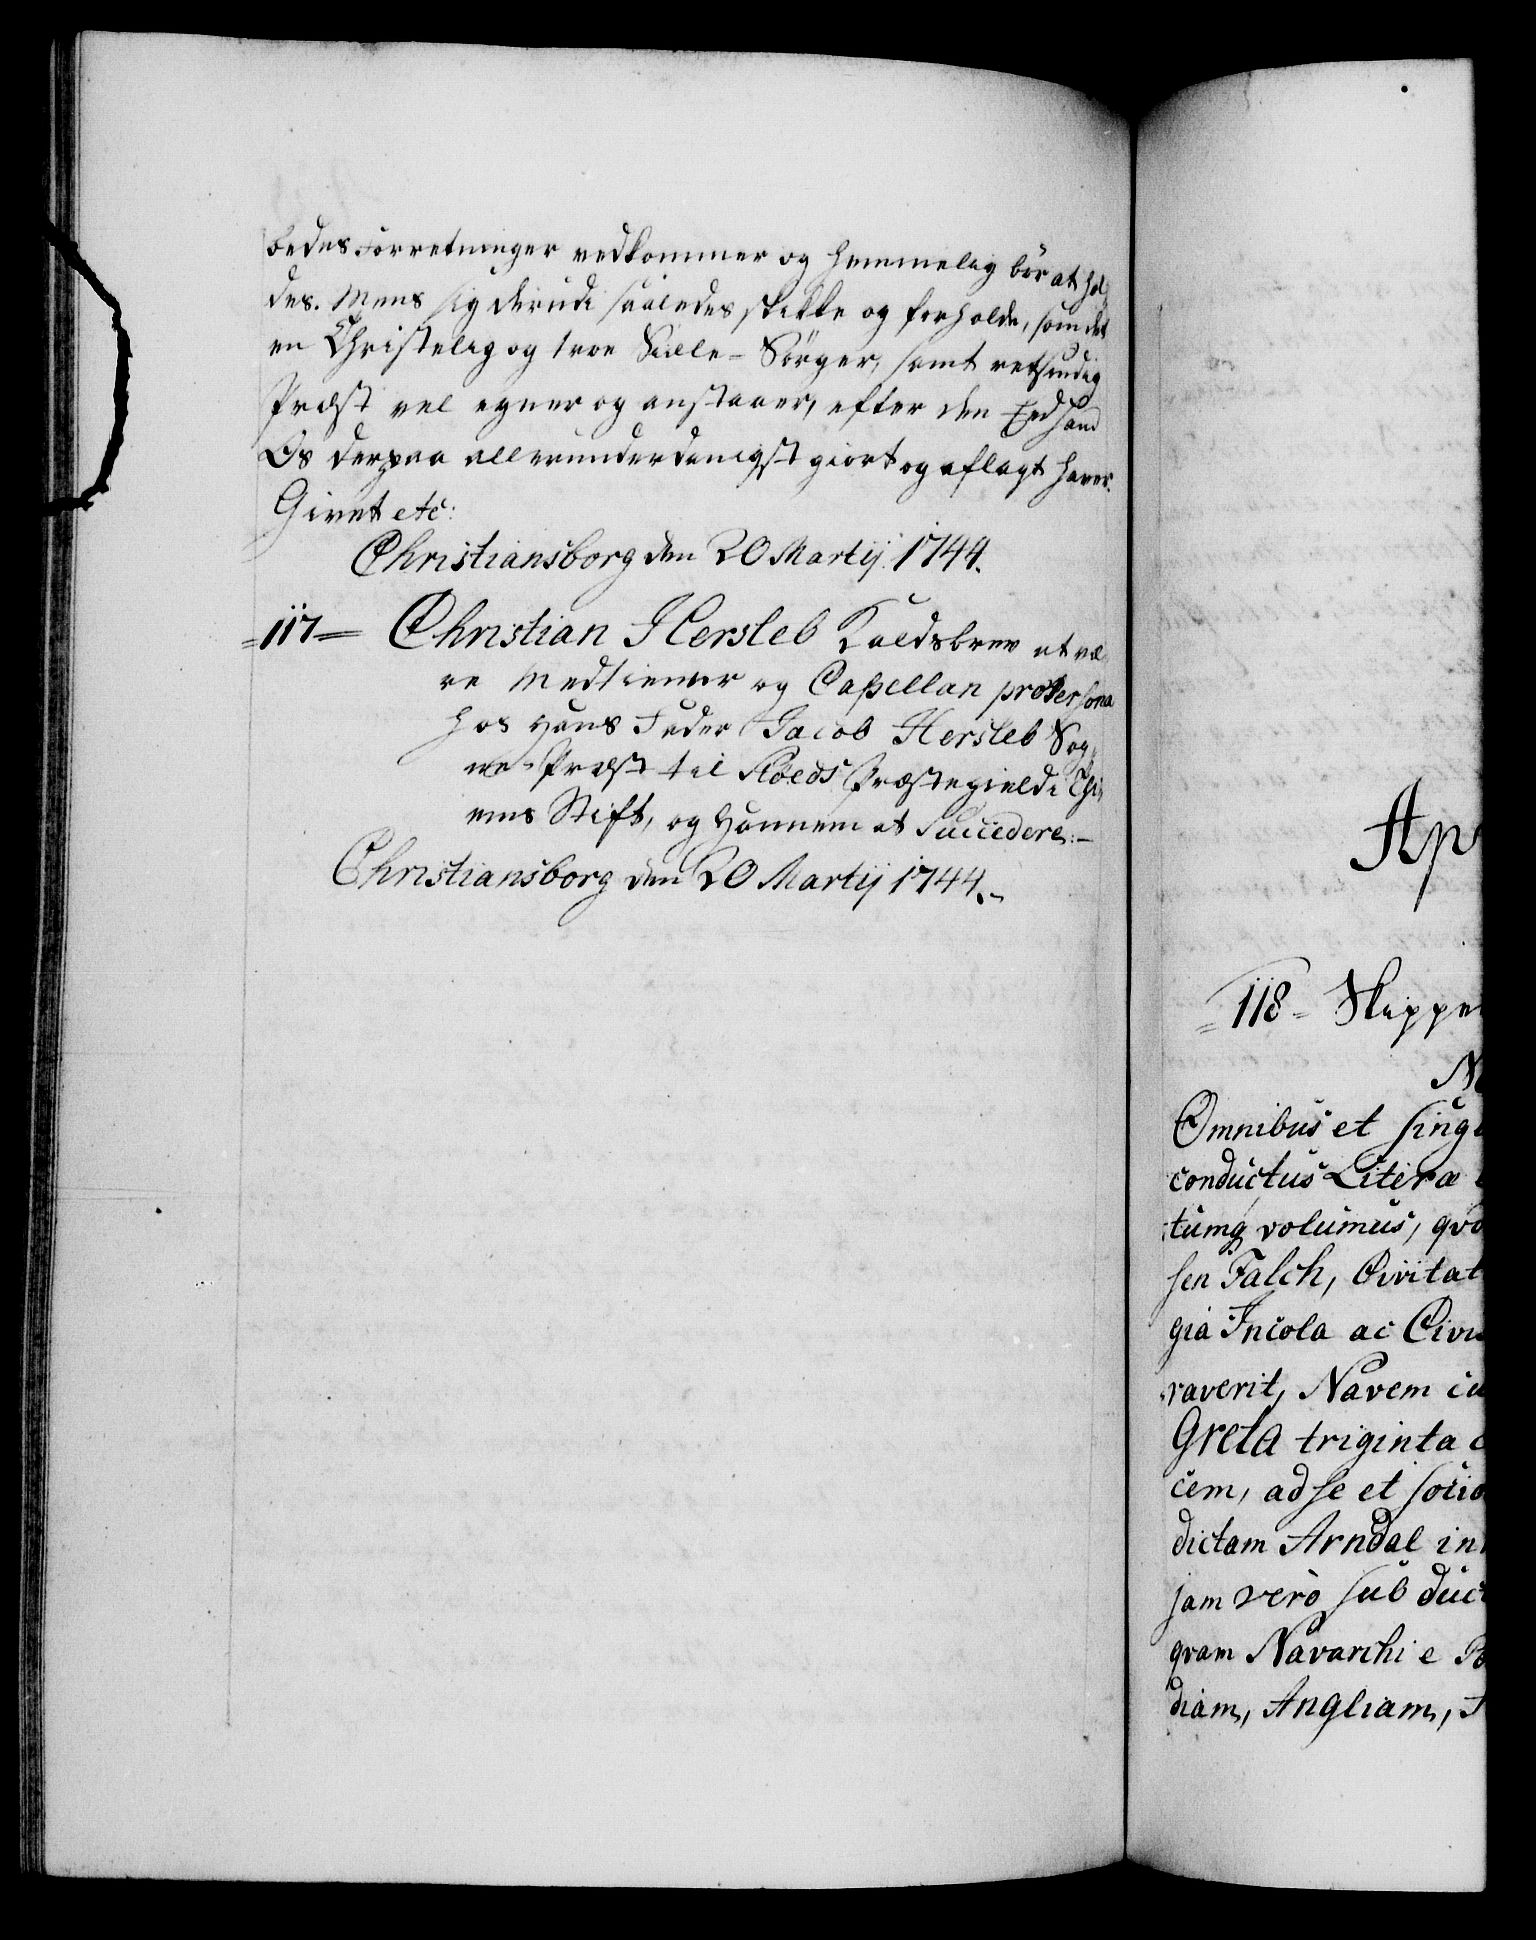 bedes Forretninger vedkommer og hemmelig bör at hol-
des. Mens sig derudi saaledes skikke og forholde, som det
en Christelig og troe Siæle-Sörger, samt retsindig
Præst vel egner og anstaaer, efter den Eed hand
Os derpaa allerunderdanigst giort og aflagt haver.
Givet etc:
Christiansborg den 20 Martij 1744.
=117= Christian Hersleb Kaldsbrev at væ-
re Medtiener og Capellan pro Persona
hos Hans Fader Jacob Hersleb Sog-
ne-Præst til Præstegield i Thi-
ems Stift, og Hannem at Succedere:-
Christiansborg den 20 Martij 1744.-
Ap
=118- Skippe
Omnibus et sing
conductus Literæ
tumq volumus, qvo
sen Falch, Civitat
gia Incola ac Civi
raverit, Navem cu
Greta triginta
cem, ad se et socio
dictam Arndal in
jam verò sub duct
qvam Navarchi e
diam, Angliam,